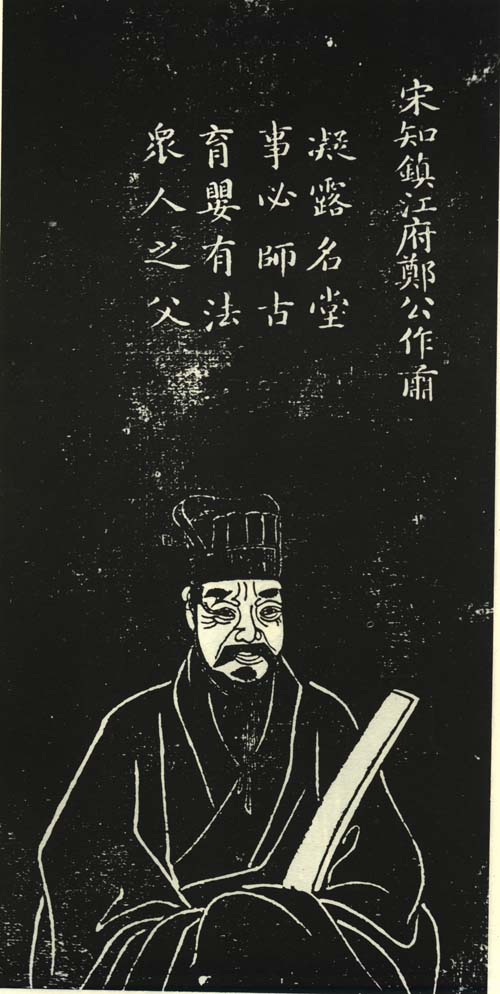 宋知鎮江府鄭公作肅
凝露名堂
事必師古
育嬰有法
眾人之父